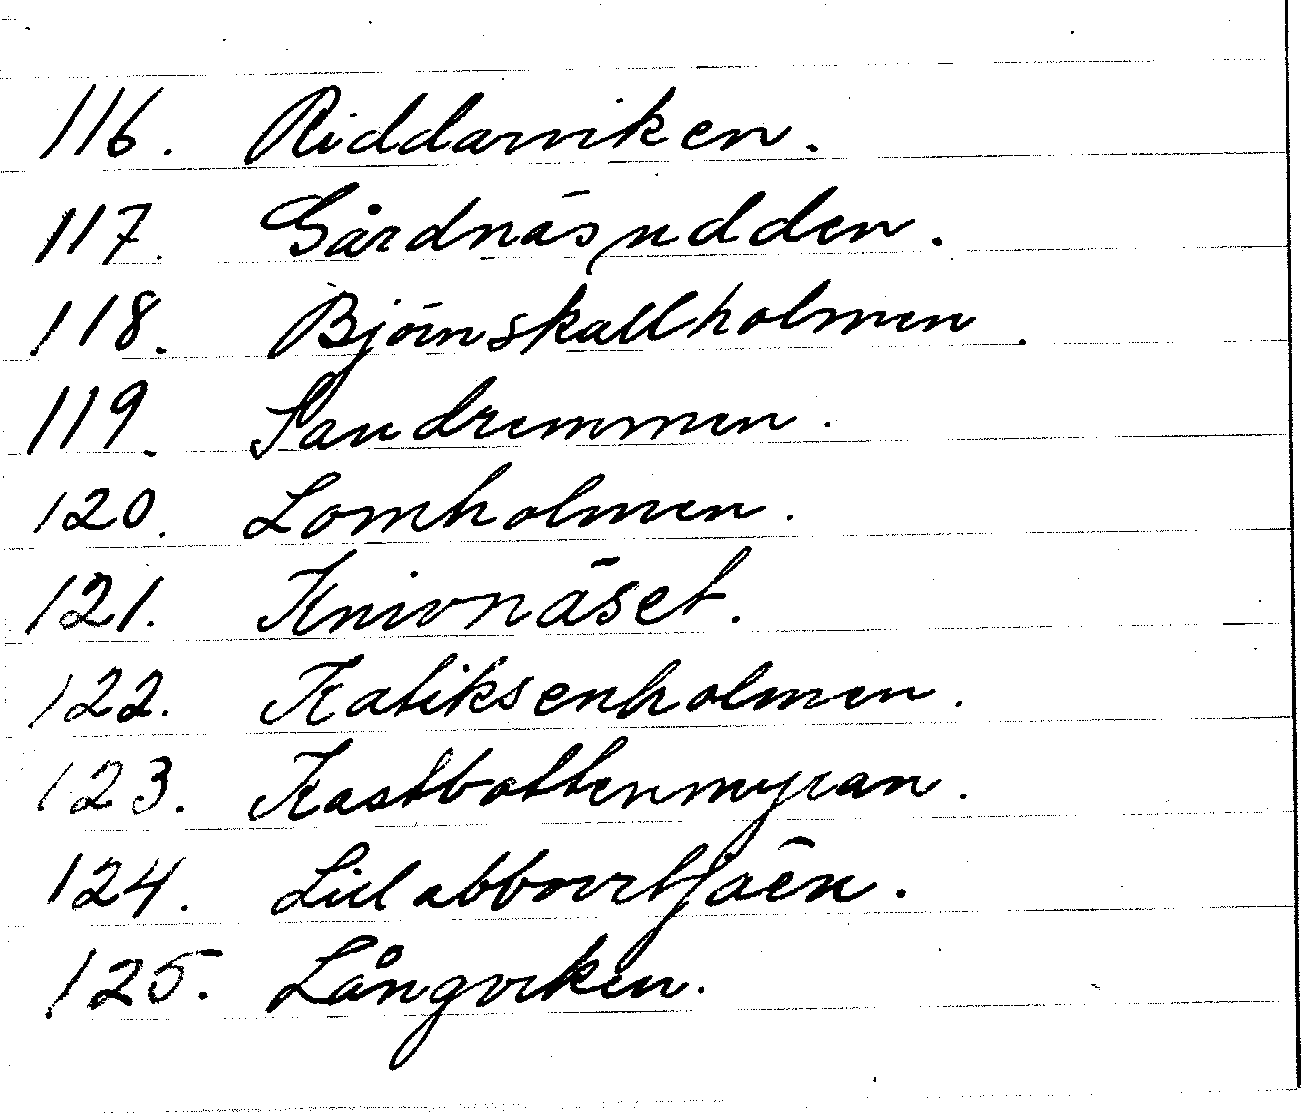 116. Riddarviken.
117. Gårdnäsudden.
118. Björnskallholmen.
119. Sandremmen.
120. Lomholmen.
121. Knivnäset.
122. Katiksenholmen.
123. Kastbottenmyran.
124. Lillabborrtjäen.
125. Långviken.